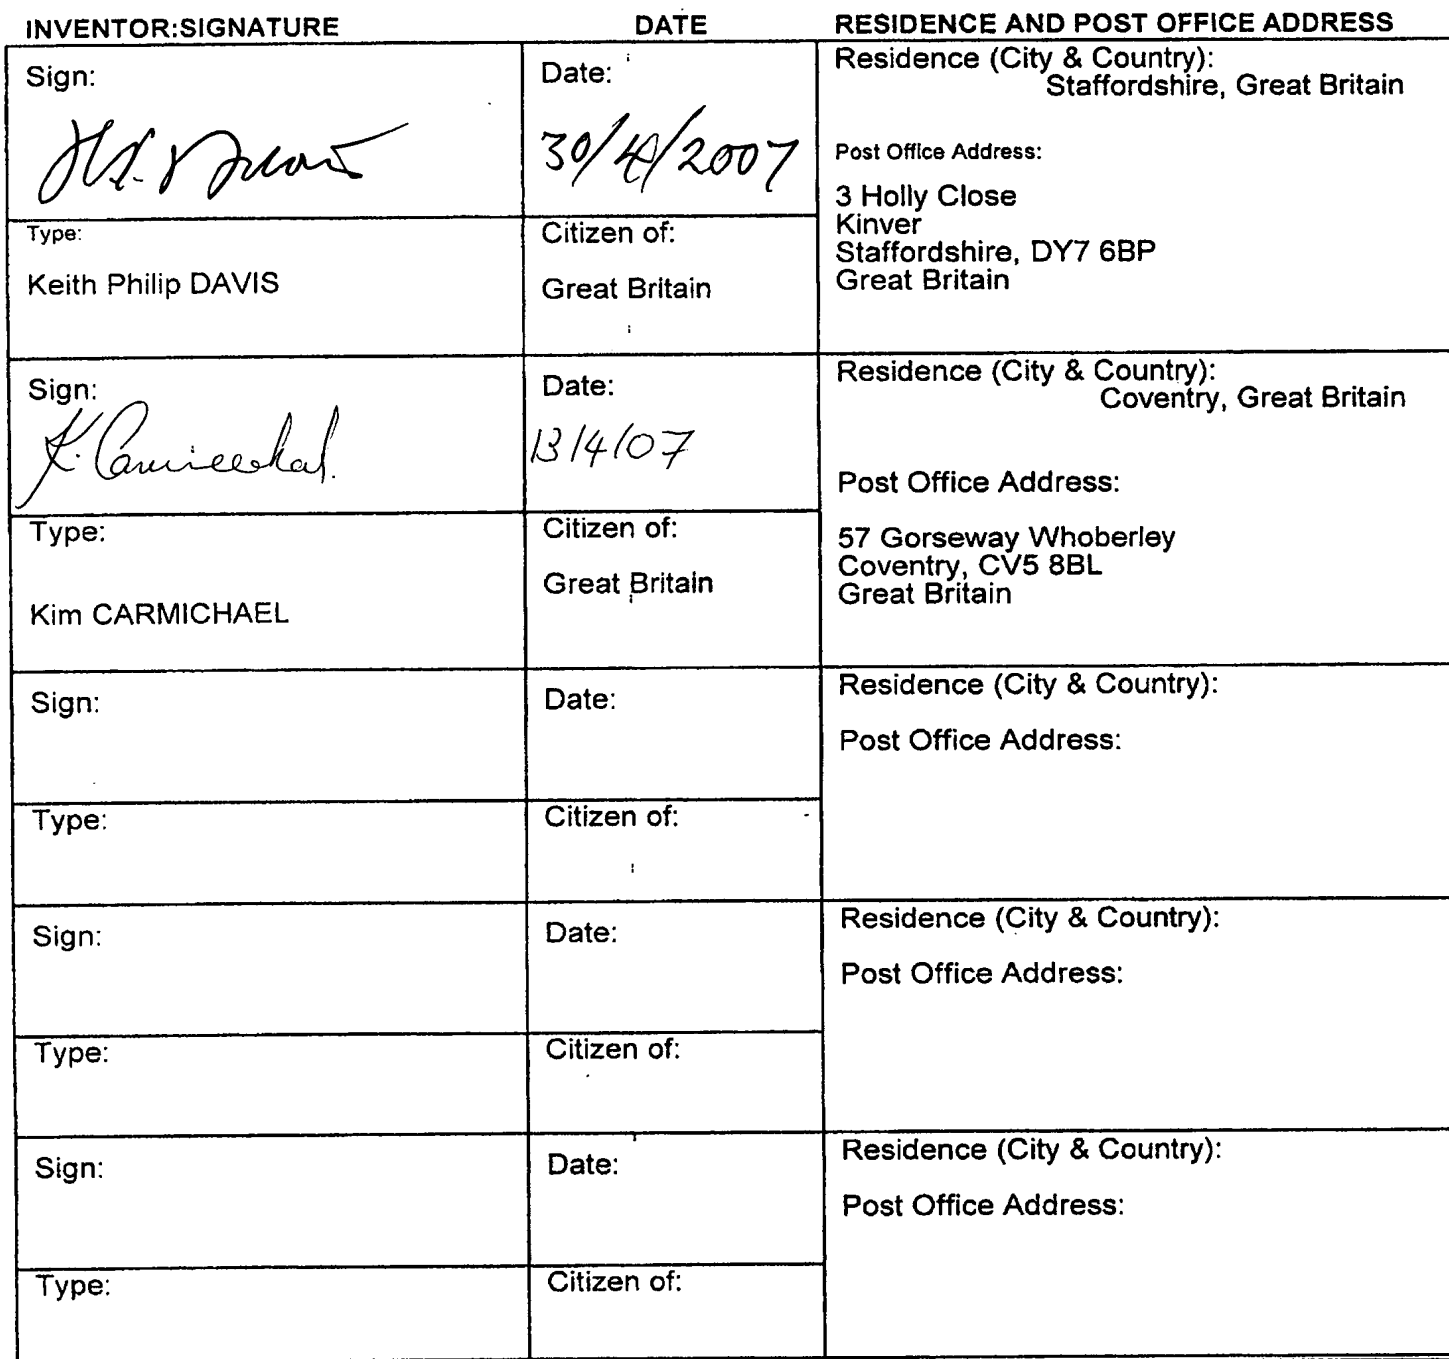 INVENTOR:SIGNATURE DATE RESIDENCE AND POST OFFICE ADDRESS
Sign:
Date:
30/4/2007
Residence (City & Country):
Staffordshire, Great Britain
Post Office Address:
3 Holly Close
Kinver
Staffordshire, DY7 6BP
Great Britain
Type:
Keith Philip DAVIS
Citizen of:
Great Britain
Sign:
K. Carmichael.
Date:
13/4/07
Residence (City & Country):
Coventry, Great Britain
Post Office Address:
57 Gorseway Whoberley
Coventry, CV5 8BL
Great Britain
Type:
Kim CARMICHAEL
Citizen of:
Great Britain
Sign:
Date:
Residence (City & Country):
Post Office Address:
Type:
Citizen of:
Sign:
Date:
Residence (City & Country):
Post Office Address:
Type:
Citizen of:
Sign:
Date:
Residence (City & Country):
Post Office Address:
Type:
Citizen of: